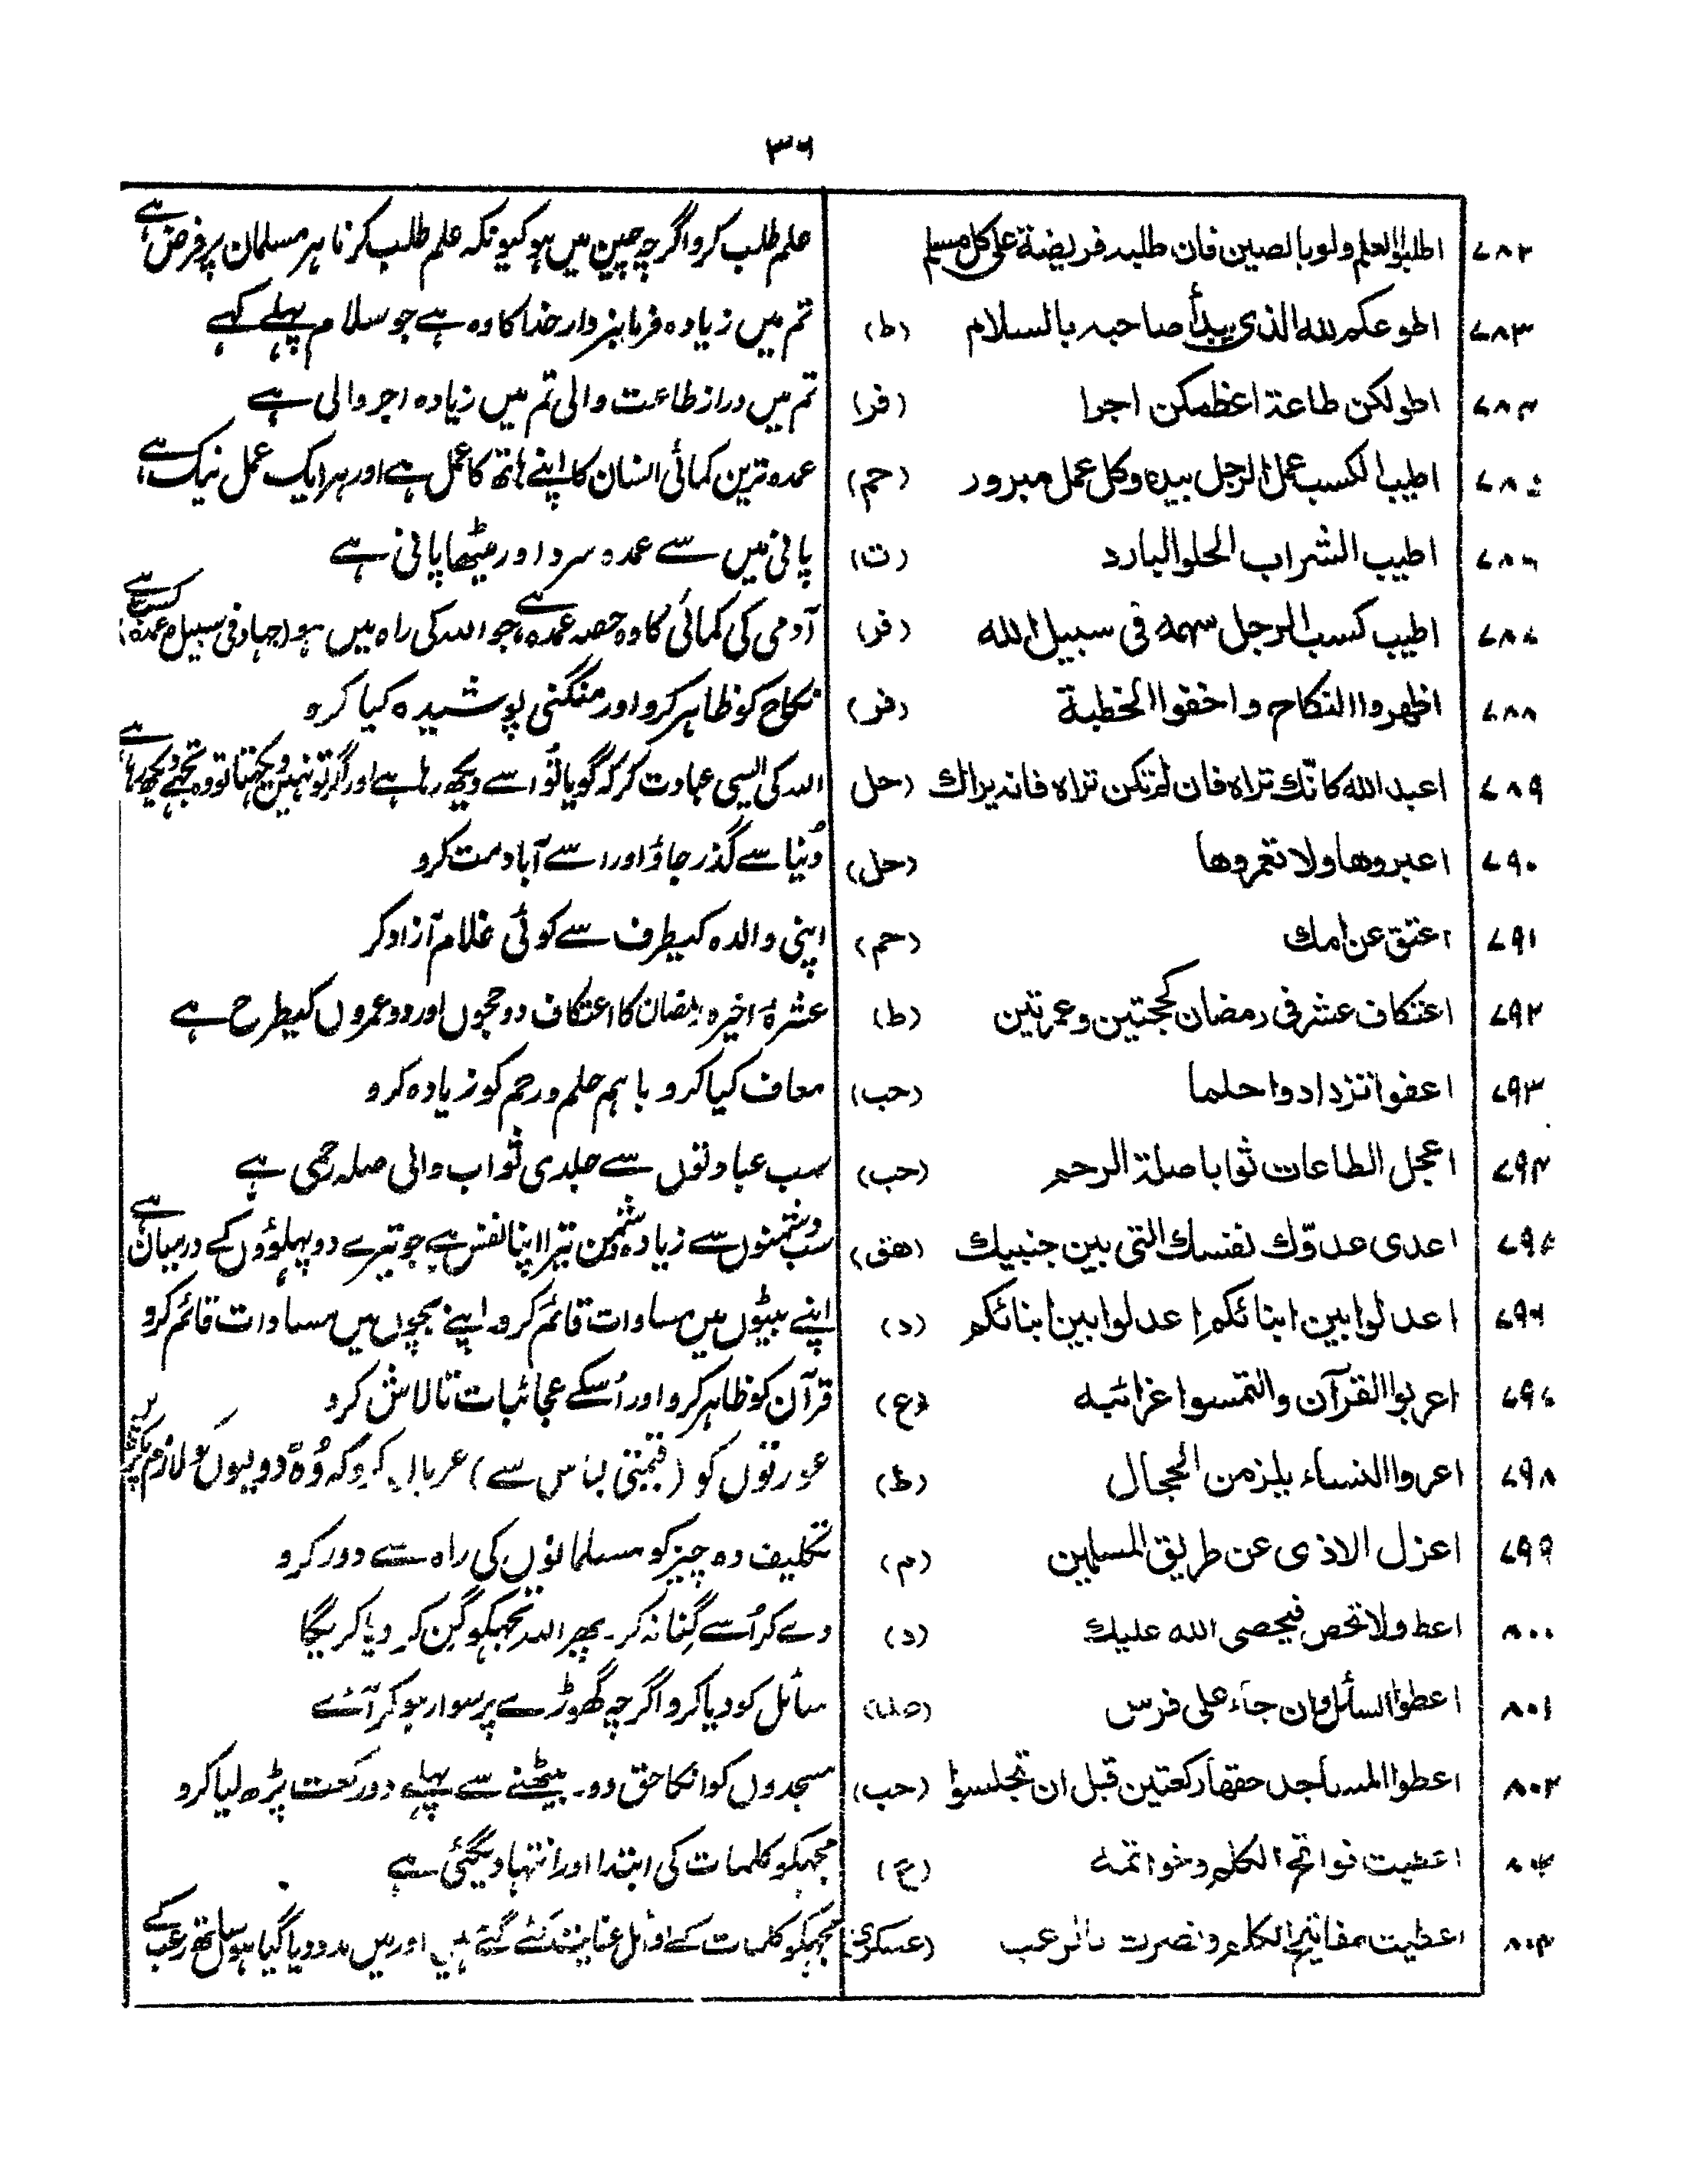 ۳۶
۷۸۲ اطلبوا العلم ولو بالصین فان طلبہ فریضة علی کل مسلم علم طلب کرو اگرچہ چین میں ہو کیونکہ علم طلب کرنا ہر مسلمان پر فرض ہے
۷۸۳ اطوعکم للہ الذی یبدأ صاحبہ بالسلام (ط) تم میں زیادہ فرمانبردار خدا کا وہ ہے جو سلام پہلے کہے
۷۸۴ اطولکن طاعة اعظمکن اجرا (فر) تم میں دراز طاعت والی تم میں زیادہ اجر والی ہے
۷۸۵ اطیب الکسب عمل الرجل بیدہ وکل عمل مبرور (حم) عمدہ ترین کمائی انسان کا اپنے ہاتھ کا عمل ہے اور ہر ایک عمل نیک ہے
۷۸۶ اطیب الشراب الحلو البارد (ت) پانی میں سے عمدہ سرد اور میٹھا پانی ہے
۷۸۷ اطیب کسب الرجل سهمه فی سبیل الله (فر) آدمی کی کمائی کا وہ حصہ عمدہ ہے جو اللہ کی راہ میں ہو (جہاد فی سبیل عمدہ کسب ہے)
۷۸۸ اظهروا النکاح واخفوا الخطبة (فر) نکاح کو ظاہر کرو اور منگنی پوشیدہ کیا کرو
۷۸۹ اعبد الله کانّک تراہ فان لم تکن تراہ فانہ یراك (حل) اللہ کی ایسی عبادت کر کہ گویا تُو اسے دیکھ رہا ہے اور اگر تو نہیں دیکھتا تو وہ تجھے دیکھ رہا ہے
۷۹۰ اعبروها ولا تعمروها (حل) دُنیا سے گذر جاؤ اور اسے آباد مت کرو
۷۹۱ اعتق عن امك (حم) اپنی والدہ کیطرف سے کوئی غلام آزاد کر
۷۹۲ اعتکاف عشر فی رمضان کحجتین وعمرتین (ط) عشرۂ اخیرہ رمضان کا اعتکاف دو حجوں اور دو عمروں کیطرح ہے
۷۹۳ اعفوا تزدادوا حلما (حب) معاف کیا کرو باہم حلم و رحم کو زیادہ کرو
۷۹۴ اعجل الطاعات ثوابا صلة الرحم (حب) سب عبادتوں سے جلدی ثواب والی صلہ رحمی ہے
۷۹۵ اعدی عدوّك نفسك التی بین جنبیك (هق) سب دشمنوں سے زیادہ دشمن تیرا اپنا نفس ہے جو تیرے دو پہلوؤں کے درمیان ہے
۷۹۶ اعدلوا بین ابنائکم اعدلوا بین ابنائکم (د) اپنے بیٹوں میں مساوات قائم کرو۔ اپنے بچوں میں مساوات قائم کرو
۷۹۷ اعربوا القرآن والتمسوا غرائبه (ع) قرآن کو ظاہر کرو اور اُسکے عجائبات تالاش کرو
۷۹۸ اعروا النساء یلزمن الحجال (ط) عورتوں کو (قیمتی لباس سے) عریاں کرو کہ وُہ لازم
۷۹۹ اعزل الاذی عن طریق المسلمین (م) تکلیف دہ چیز کو مسلمانوں کی راہ سے دور کرو
۸۰۰ اعط ولا تحص فیحصی الله علیك (د) دے کر اُسے گِنا نہ کر۔ پھر اللہ تجھکو گِن کر دیا کریگا
۸۰۱ اعطوا السائل وان جاء علی فرس سائل کو دیا کرو اگرچہ گھوڑے پر سوار ہو کر آئے
۸۰۲ اعطوا المساجد حقها رکعتین قبل ان تجلسوا (حب) مسجدوں کو انکا حق دو۔ بیٹھنے سے پہلے دو رکعت پڑھ لیا کرو
۸۰۳ اعطیت فواتح الکلم وخواتمه (ع) مجھکو کلمات کی ابتدا اور انتہا دیگئی ہے
۸۰۴ اعطیت مفاتیح الکلم ونصرت بالرعب (عسکری) مجھکو کلمات کے اوائل عنایت کئے گئے ہیں اور میں مدد دیا گیا ہوں ساتھ رعب کے